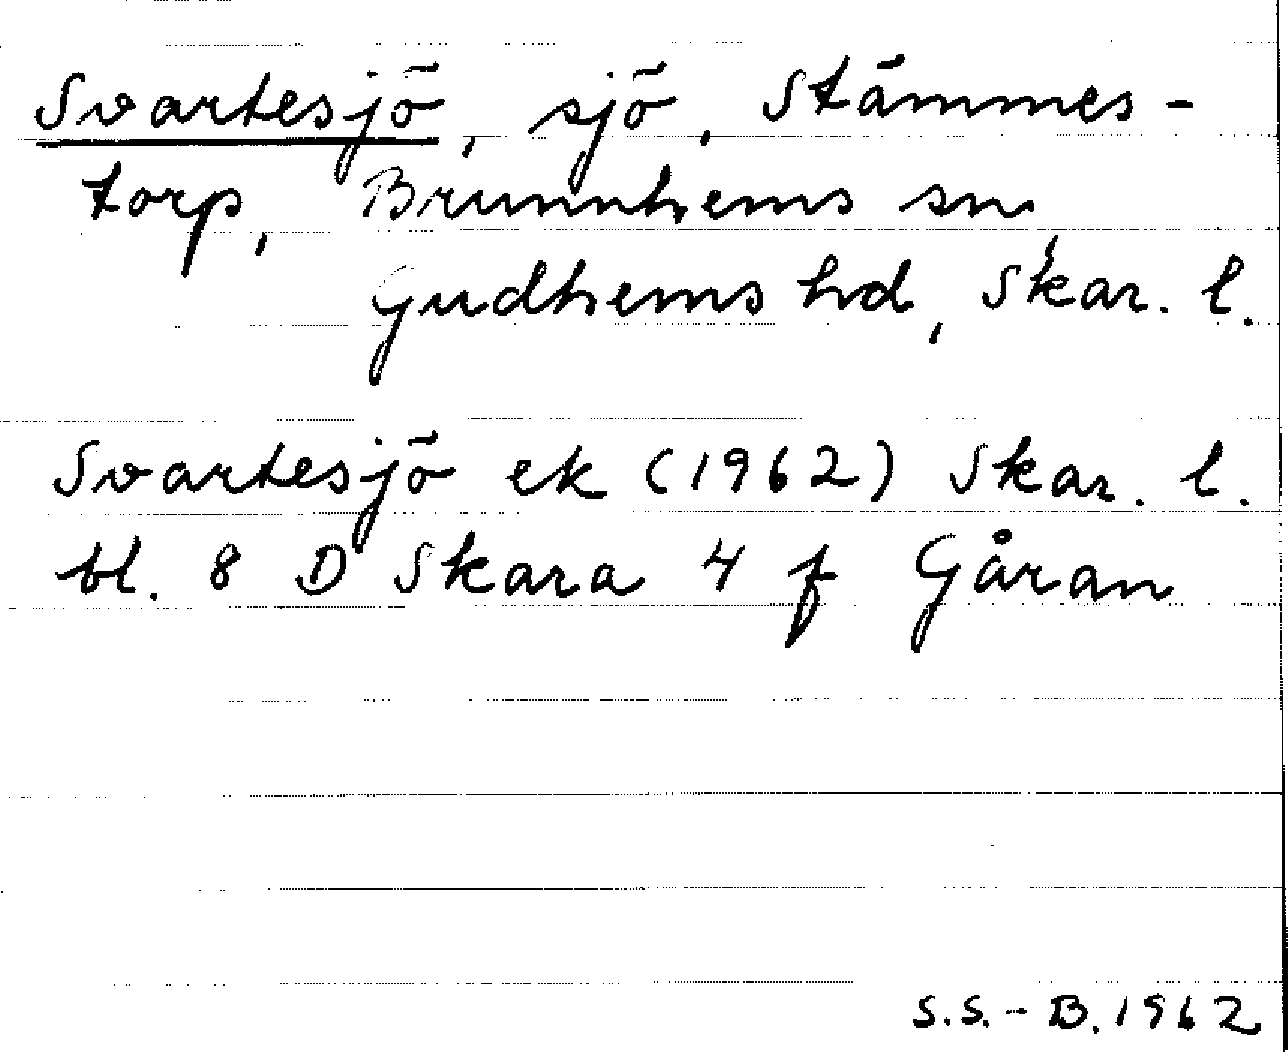 Svartesjö, sjö, Stämmes-
torp, Brunnhems sn
Gudhems hd, Skar. l.
Svartesjö ek (1962) Skar. l.
bl. 8 D Skara 4 f Gåran
S.S.-B. 1962